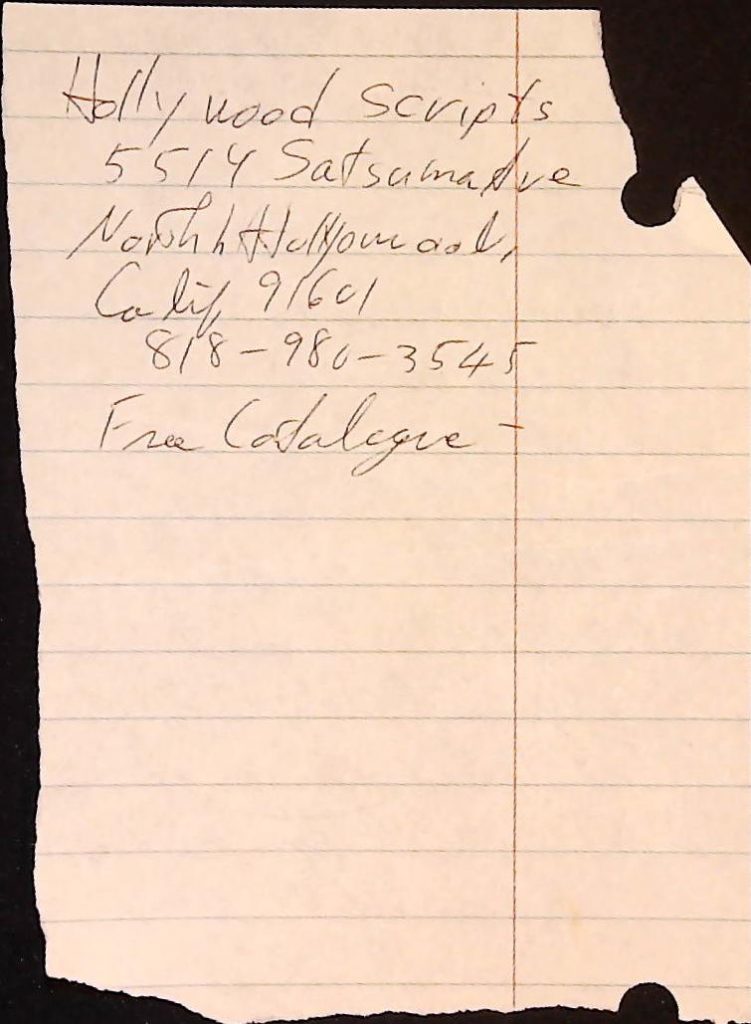 Hollywood Scripts
5514 Satsuma Ave
North Hollywood,
Calif, 91601
818-980-3545
Free Catalogue -